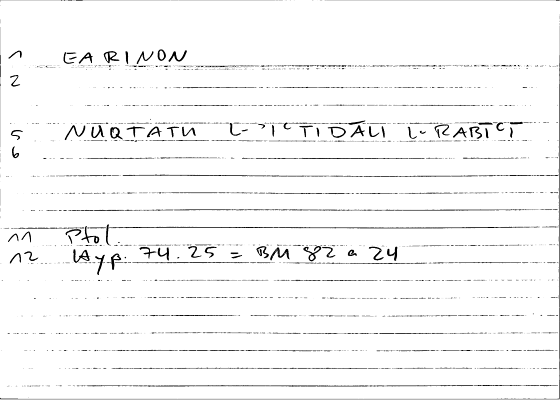 1 EARINON
2
5 NUQTATU L-ʾIʿTIDĀLI L-RABĪʿĪ
6
11 Ptol.
12 Hyp. 74.25 = BM 82 a 24